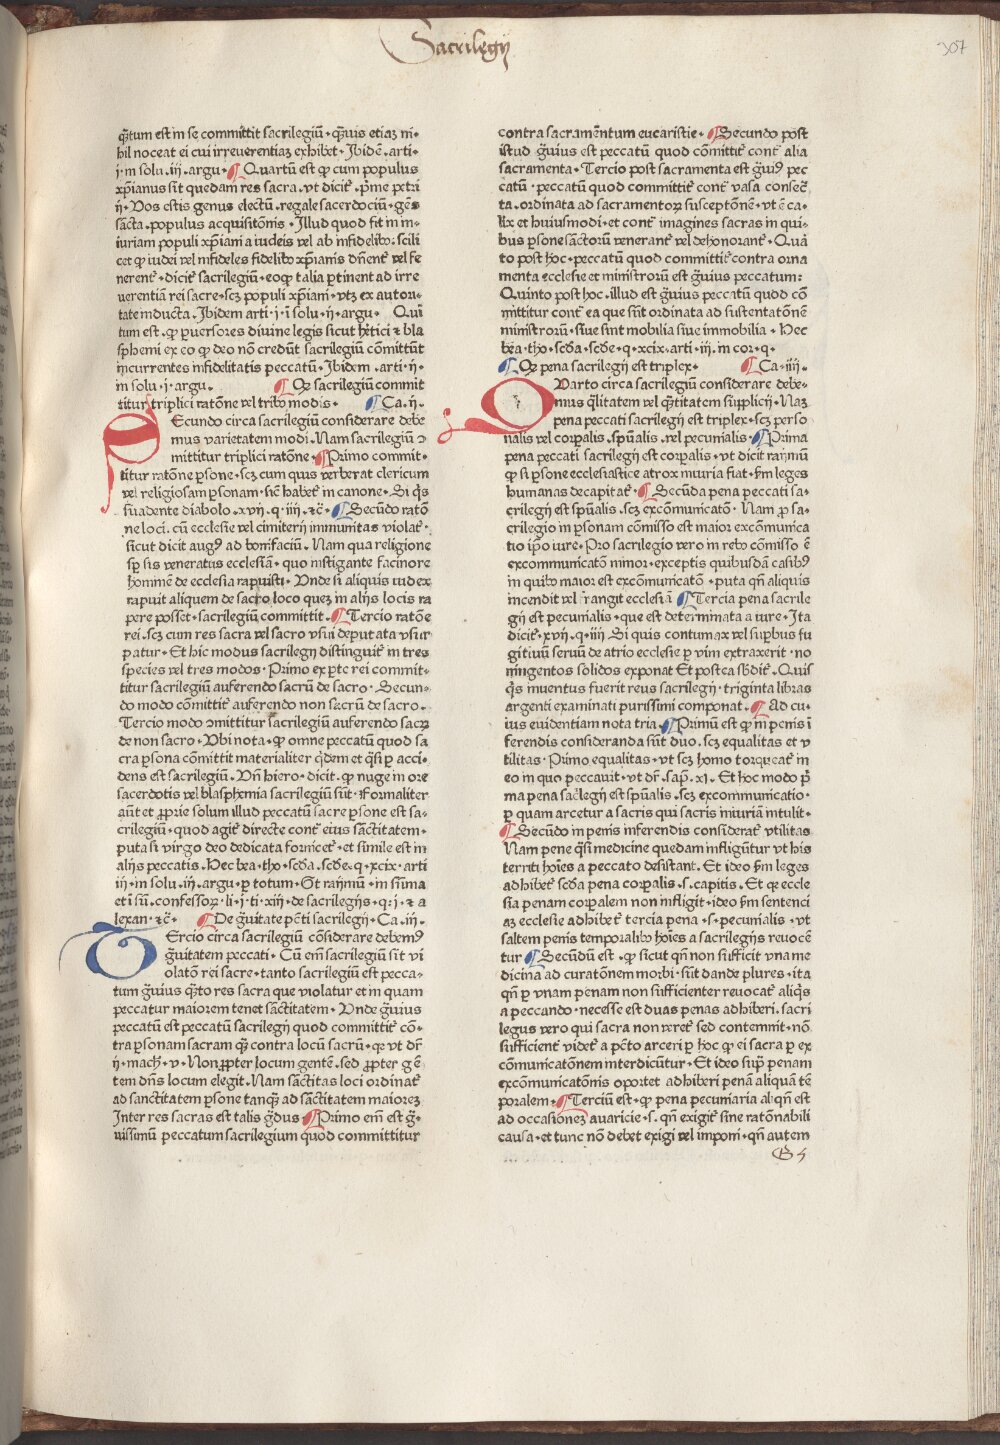 Sacrilegij
307
q̄tum est in se committit sacrilegiū · q̄uis etiaz ni-
hil noceat ei cui irreuerentiaz exhibet · Ibidē . arti-
i · in solu . iij . argu · ¶ Quartū est ꝙ cum populus
xp̄ianus sit quedam res sacra . vt dicit᷑ . pͥme petri
ij · Vos estis genus electū . regale sacerdociū · gēs
sācta . populus acquisitōnis · Illud quod fit in in-
iuriam populi xp̄iani a iudeis vel ab infidelibꝰ . scili
cet ꝙ iudei vel infideles fidelibꝰ xp̄ianis dn̄ent᷑ vel fe
nerent᷑ · dicit᷑ sacrilegiū · eoꝙ talia ꝑtinent ad irre
uerentiā rei sacre · scꝫ populi xp̄iani · vtꝫ ex autori-
tate inducta . Ibidem arti · i · i solu · ij · argu · Quī
tum est . ꝙ ꝑuersores diuine legis sicut hētici ⁊ bla
sphemi ex eo ꝙ deo nō credūt sacrilegiū cōmittūt
incurrentes infidelitatis peccatū · Ibidem . arti · ij ·
in solu · i · argu . ¶ Qꝫ sacrilegiū commit
titur triplici ratōne vel tribꝰ modis · ¶ Ca . ij .
Secundo circa sacrilegiū considerare debe
mus varietatem modi . Nam sacrilegiū ɔ
mittitur triplici ratōne · ¶ Primo commit-
titur ratōne ꝑsone · scꝫ cum quis verberat clericum
vel religiosam ꝑsonam · sic̄ habet᷑ in canone · Si q̄s
suadente diabolo . xvij . q · iiij . ⁊c̄ · ¶ Secūdo ratō
ne loci . cū ecclesie vel cimiterij immunitas violat᷑ ·
sicut dicit augꝰ ad bonifaciū . Nam qua religione
sp̄ sis veneratus ecclesiā · quo instigante facinore
hominē de ecclesia rapuisti · Vnde si aliquis iudex
rapuit aliquem de sacro loco quez in alijs locis ra
pere posset · sacrilegiū committit . ¶ Tercio ratōe
rei . scꝫ cum res sacra vel sacro vsui deputata vsur
patur · Et hic modus sacrilegij distinguit᷑ in tres
species vel tres modos · Primo ex ꝑte rei commit-
titur sacrilegiū auferendo sacrū de sacro · Secun-
do modo cōmittit᷑ auferendo non sacrū de sacro ·
Tercio modo ɔmittitur sacrilegiū auferendo sacꝝ
de non sacro · Vbi nota · ꝙ omne peccatū quod sa
cra ꝑsona cōmittit materialiter q̄dem et q̄si ꝑ acci-
dens est sacrilegiū . Vn̄ hiero · dicit . ꝙ nuge in ore
sacerdotis vel blasphemia sacrilegiū sūt · Formaliter
aūt et ꝓprie solum illud peccatū sacre ꝑsone est sa-
crilegiū · quod agit᷑ directe cont᷑ eius sāctitatem ·
puta si virgo deo dedicata fornicet᷑ · et simile est in
alijs peccatis . Hec bea · tho · scd̄a . scd̄e · q · xcix · arti
iij · in solu . iij . argu · ꝑ totum · Et raijmū · in sūma
et ī sū . confessoꝝ · li · i · ti · xiij · de sacrilegijs · q · i · ⁊ a
lexan · ⁊c̄ · ¶ De g̃uitate pc̄ti sacrilegij · Ca · iij ·
Tercio circa sacrilegiū cōsiderare debemꝰ
g̃uitatem peccati · Cū em̄ sacrilegiū sit vi
olatō rei sacre · tanto sacrilegiū est pecca-
tum g̃uius q̄to res sacra que violatur et in quam
peccatur maiorem tenet sāctitatem · Vnde g̃uius
peccatū est peccatū sacrilegij quod committit᷑ cō-
tra ꝑsonam sacram q̄ contra locū sacrū · ꝙ vt dr̄
ij · mach᷑ · v · Non ꝓpter locum gentē . sed ꝓpter gē
tem dn̄s locum elegit . Nam sāctitas loci ordinat᷑
ad sanctitatem ꝑsone tanq̄ ad sāctitatem maiorez
Inter res sacras est talis g̃dus ¶ Primo em̄ est g̃-
uissimū peccatum sacrilegium quod committitur
contra sacramentum eucaristie · ¶ Secundo post
istud g̃uius est peccatū quod cōmittit᷑ cont᷑ alia
sacramenta · Tercio post sacramenta est g̃uiꝰ pec
catū · peccatū quod committit᷑ cont᷑ vasa consec̄
ta . ordinata ad sacramentoꝝ susceptōnē · vt ē ca-
lix et huiusmodi · et cont᷑ imagines sacras in qui-
bus ꝑsone sāctorū venerant᷑ vel dehonorant᷑ · Quar
to post hoc · peccatū quod committit᷑ contra orna
menta ecclesie et ministrorū est g̃uius peccatum :
Quinto post hoc . illud est g̃uius peccatū quod cō
mittitur cont᷑ ea que sūt ordinata ad sustentatōnē
ministrorū · siue sint mobilia siue immobilia · Hec
bea · tho · scd̄a · scd̄e · q · xcix . arti · iij . in cor · q ·
¶ Qꝫ pena sacrilegij est triplex · ¶ Ca · iiij ·
Qvarto circa sacrilegiū considerare debe-
mus q̄litatem vel q̄titatem supplicij · Naꝫ
pena peccati sacrilegij est triplex · scꝫ perso
nalis vel corꝑalis . spūalis . vel pecunialis · ¶ Prima
pena peccati sacrilegij est corꝑalis · vt dicit raijmū
ꝙ si ꝑsone ecclesiastice atrox iniuria fiat · ẜm leges
humanas decapitat᷑ · ¶ Secūda pena peccati sa-
crilegij est spūalis . scꝫ excōmunicatō · Nam ꝓ sa-
crilegio in ꝑsonam cōmisso est maior excōmunica
tio ip̄o iure · Pro sacrilegio vero in rebꝰ cōmisso ē
excommunicatō minor · exceptis quibusdā casibꝰ
in quibꝰ maior est excōmunicatō · puta qn̄ aliquis
incendit vel frangit ecclesiā ¶ Tercia pena sacrile
gij est pecunialis · que est determinata a iure · Ita
dicit᷑ · xvij · q · iiij Si quis contumax vel suꝑbus fu
gitiuū seruū de atrio ecclesie ꝑ vim extraxerit · no
ningentos solidos exponat Et postea sb̄dit᷑ . Quis
q̄s inuentus fuerit reus sacrilegij · triginta libras
argenti examinati purissimi componat · ¶ Ad cu-
ius euidentiam nota tria · ¶ Primū est ꝙ in penis ī
ferendis consideranda sūt duo . scꝫ equalitas et v
tilitas · Primo equalitas · vt scꝫ homo torqueat᷑ in
eo in quo peccauit · vt dr̄ . sap̄ . xj . Et hoc modo pͥ
ma pena sac̄legij est spūalis . scꝫ excommunicatio ·
ꝑ quam arcetur a sacris qui sacris iniuriā intulit ·
¶ Secūdo in penis inferendis considerat᷑ vtilitas
Nam pene q̄si medicine quedam infligūtur vt his
territi hoīes a peccato desistant . Et ideo ẜm leges
adhibet᷑ scd̄a pena corꝑalis · s . capitis . Et qꝛ eccle
sia penam corꝑalem non infligit · ideo ẜm sentenci
aꝫ ecclesie adhibet᷑ tercia pena · s · pecunialis · vt
saltem penis temporalibꝰ hoīes a sacrilegijs reuocē
tur ¶ Secūdū est . ꝙ sicut qn̄ non sufficit vna me
dicina ad curatōnem morbi · sūt dande plures · ita
qn̄ ꝑ vnam penam non sufficienter reuocat᷑ aliq̄s
a peccando · necesse est duas penas adhiberi . sacri
legus vero qui sacra non veret᷑ sed contemnit · nō
sufficient᷑ videt᷑ a pec̄to arceri ꝑ hoc ꝙ ei sacra ꝑ ex
cōmunicatōnem interdicūtur · Et ideo suꝑ penam
excōmunicatōnis oportet adhiberi penā aliquā tē
poralem · ¶ Terciū est · ꝙ pena pecuniaria aliqn̄ est
ad occasionez auaricie · s . qn̄ exigit᷑ sine ratōnabili
causa · et tunc nō debet exigi vel imponi · qn̄ autem